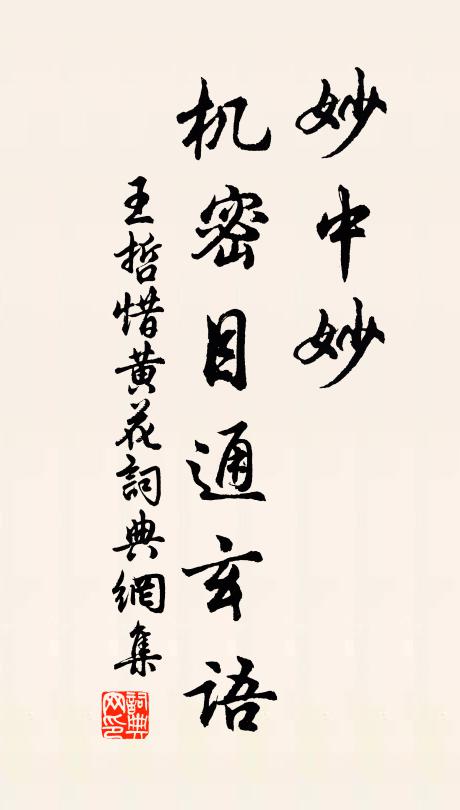 妙中妙
机密目通玄語
王哲惜黄花詞典網集
詞典
网印